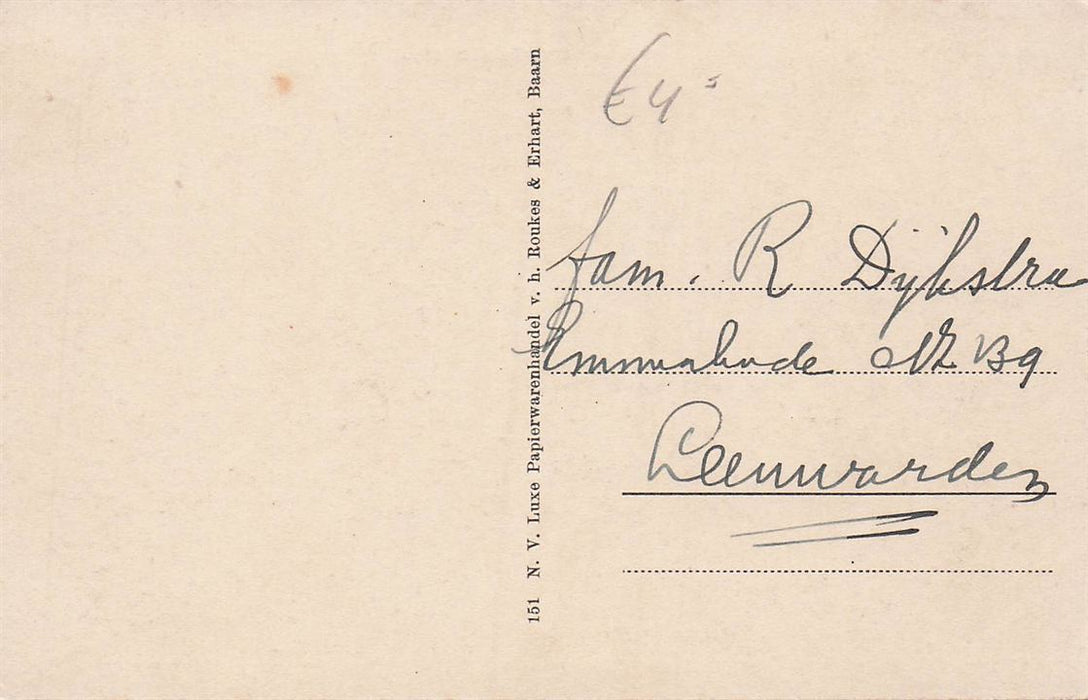 151 N. V. Luxe Papierwarenhandel v. h. Roukes & Erhart, Baarn
€ 4⁵
fam. R Dijkstra
Emmakade NZ 139
Leeuwarden